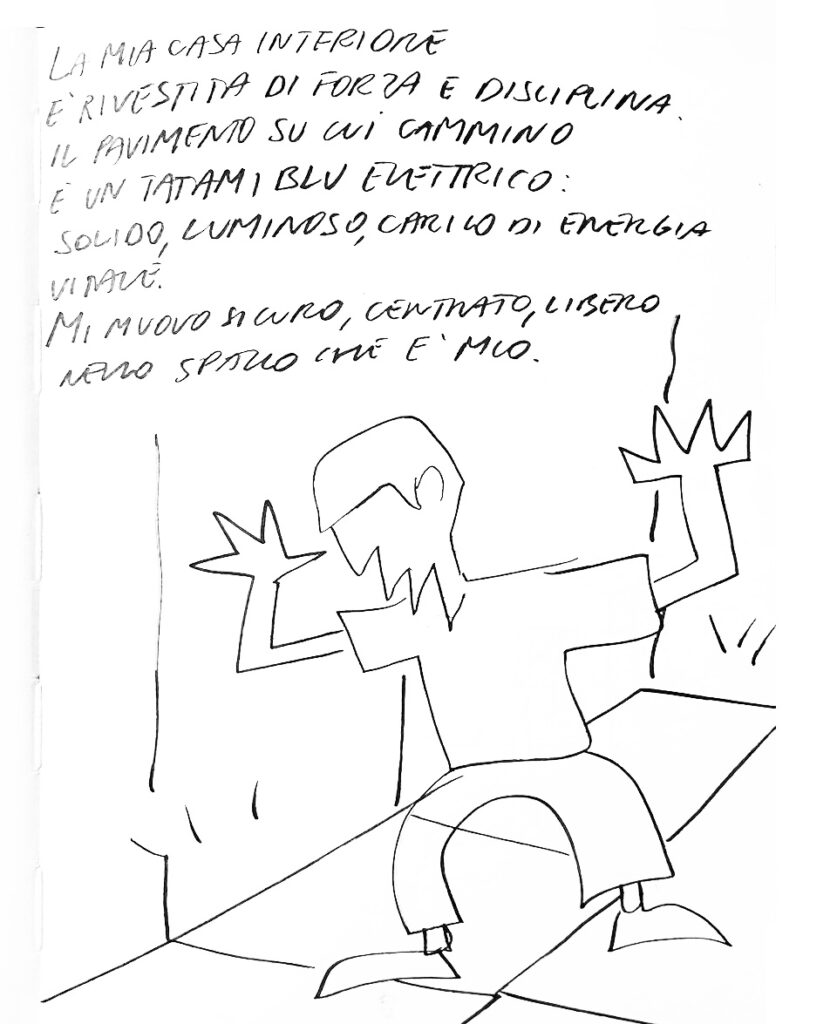 LA MIA CASA INTERIORE
E' RIVESTITA DI FORZA E DISCIPLINA.
IL PAVIMENTO SU CUI CAMMINO
È UN TATAMI BLU ELETTRICO:
SOLIDO, LUMINOSO, CARICO DI ENERGIA
VITALE.
MI MUOVO SICURO, CENTRATO, LIBERO
NELLO SPAZIO CHE E' MIO.